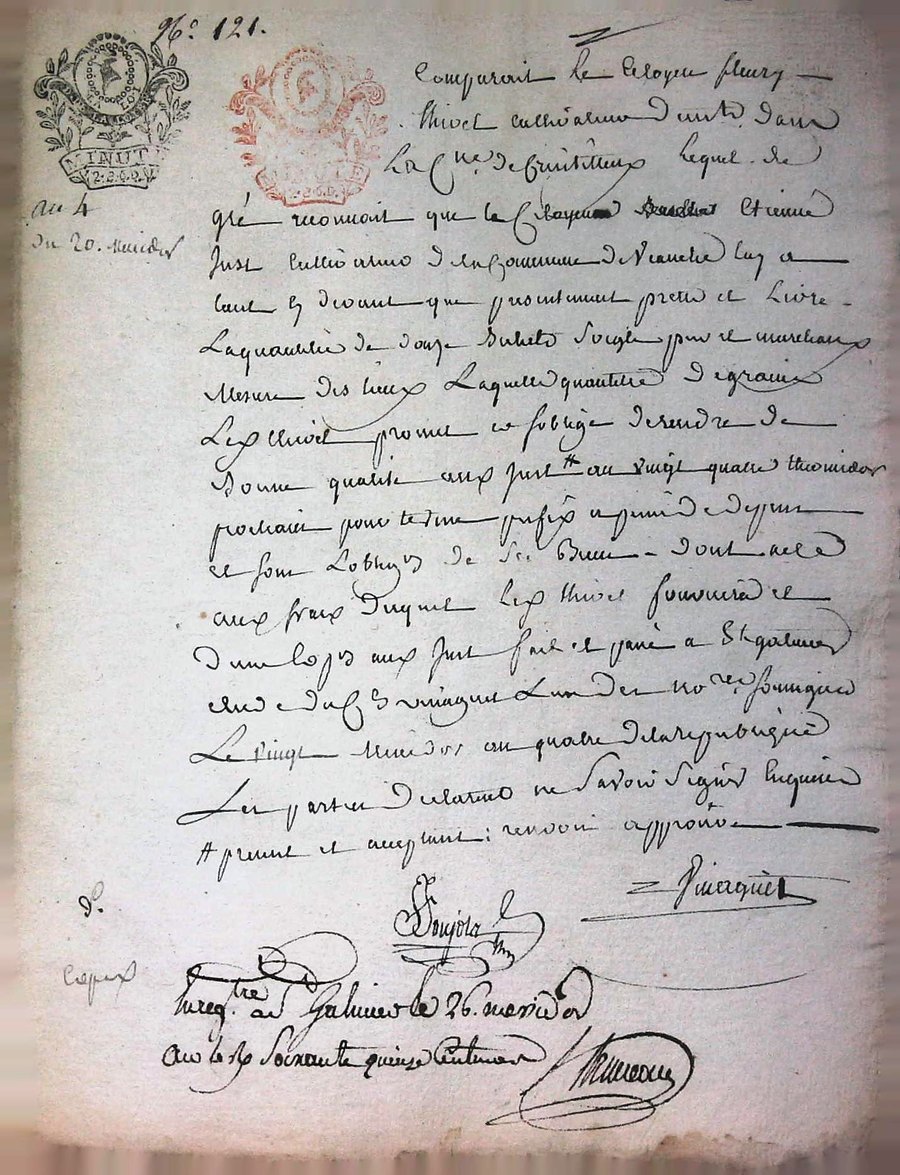 N.° 121.
MINUTE
MINUTE
an 4
du 20. Messidor
Comparait le Citoyen fleury
thivel cultivateur demt. dans
La Cne. de Lequel de
gré reconnoit que le Citoyen Etienne
Just cultivateur de la Commune de luy a
tant cy devant que presentement preté et Livré
La quantité de douze Bichets Seigle pur et marchand
Mesure des lieux Laquelle quantité de grains
Led. thivel promet et soblige de rendre de
Bonne qualité aud. Just # au vingt quatre thermidor
prochain pour terme prefix a peine de depens
et sous Lobligon de ses Biens dont acte
aux fraix duquel Led. thivel fournira et
d'une Copie aud. Just fait et passé a St. galmier
etude du Cn. vinagnet Lun des nores. soussignés
Le vingt Messidor an quatre de la republique
Les parties declarent ne Savoir Signer Enquises
# present et acceptant; renvoi approuvé
Soujola
do.
Copie
Enregtré. a Galmier le 26. messidor
an 4 Soixante quinze Centimes